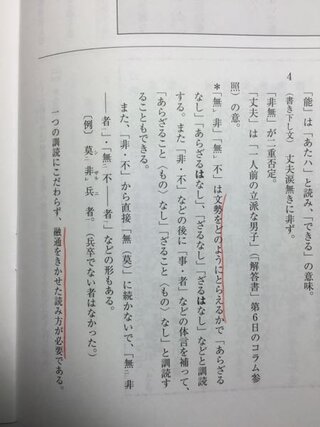 「能」は「あたハ」と読み、「できる」の意味。
4
(書き下し文) 丈夫涙無きに非ず。
「非無」が二重否定。
「丈夫」は「一人前の立派な男子」(『解答書』第6日のコラム参
照)の意。
*「無非」「無不」は文勢をどのようにとらえるかで「あらざる
なし」「あらざるはなし」、「ざるなし」「ざるはなし」などと訓読
する。また「非・不」などの後に「事・者」などの体言を補って、
「あらざること〈もの〉なし」「ざること〈もの〉なし」と訓読す
ることもできる。
また、「非・不」から直接「無(莫)」に続かないで、「無非
――者」・「無不――者」などの形もある。
〔例〕 莫非兵者。(兵卒でない者はなかった。)
一つの訓読にこだわらず、融通をきかせた読み方が必要である。